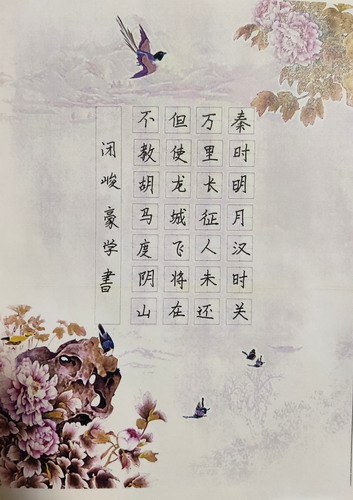 秦时明月汉时关
万里长征人未还
但使龙城飞将在
不教胡马度阴山
闭峻豪学书